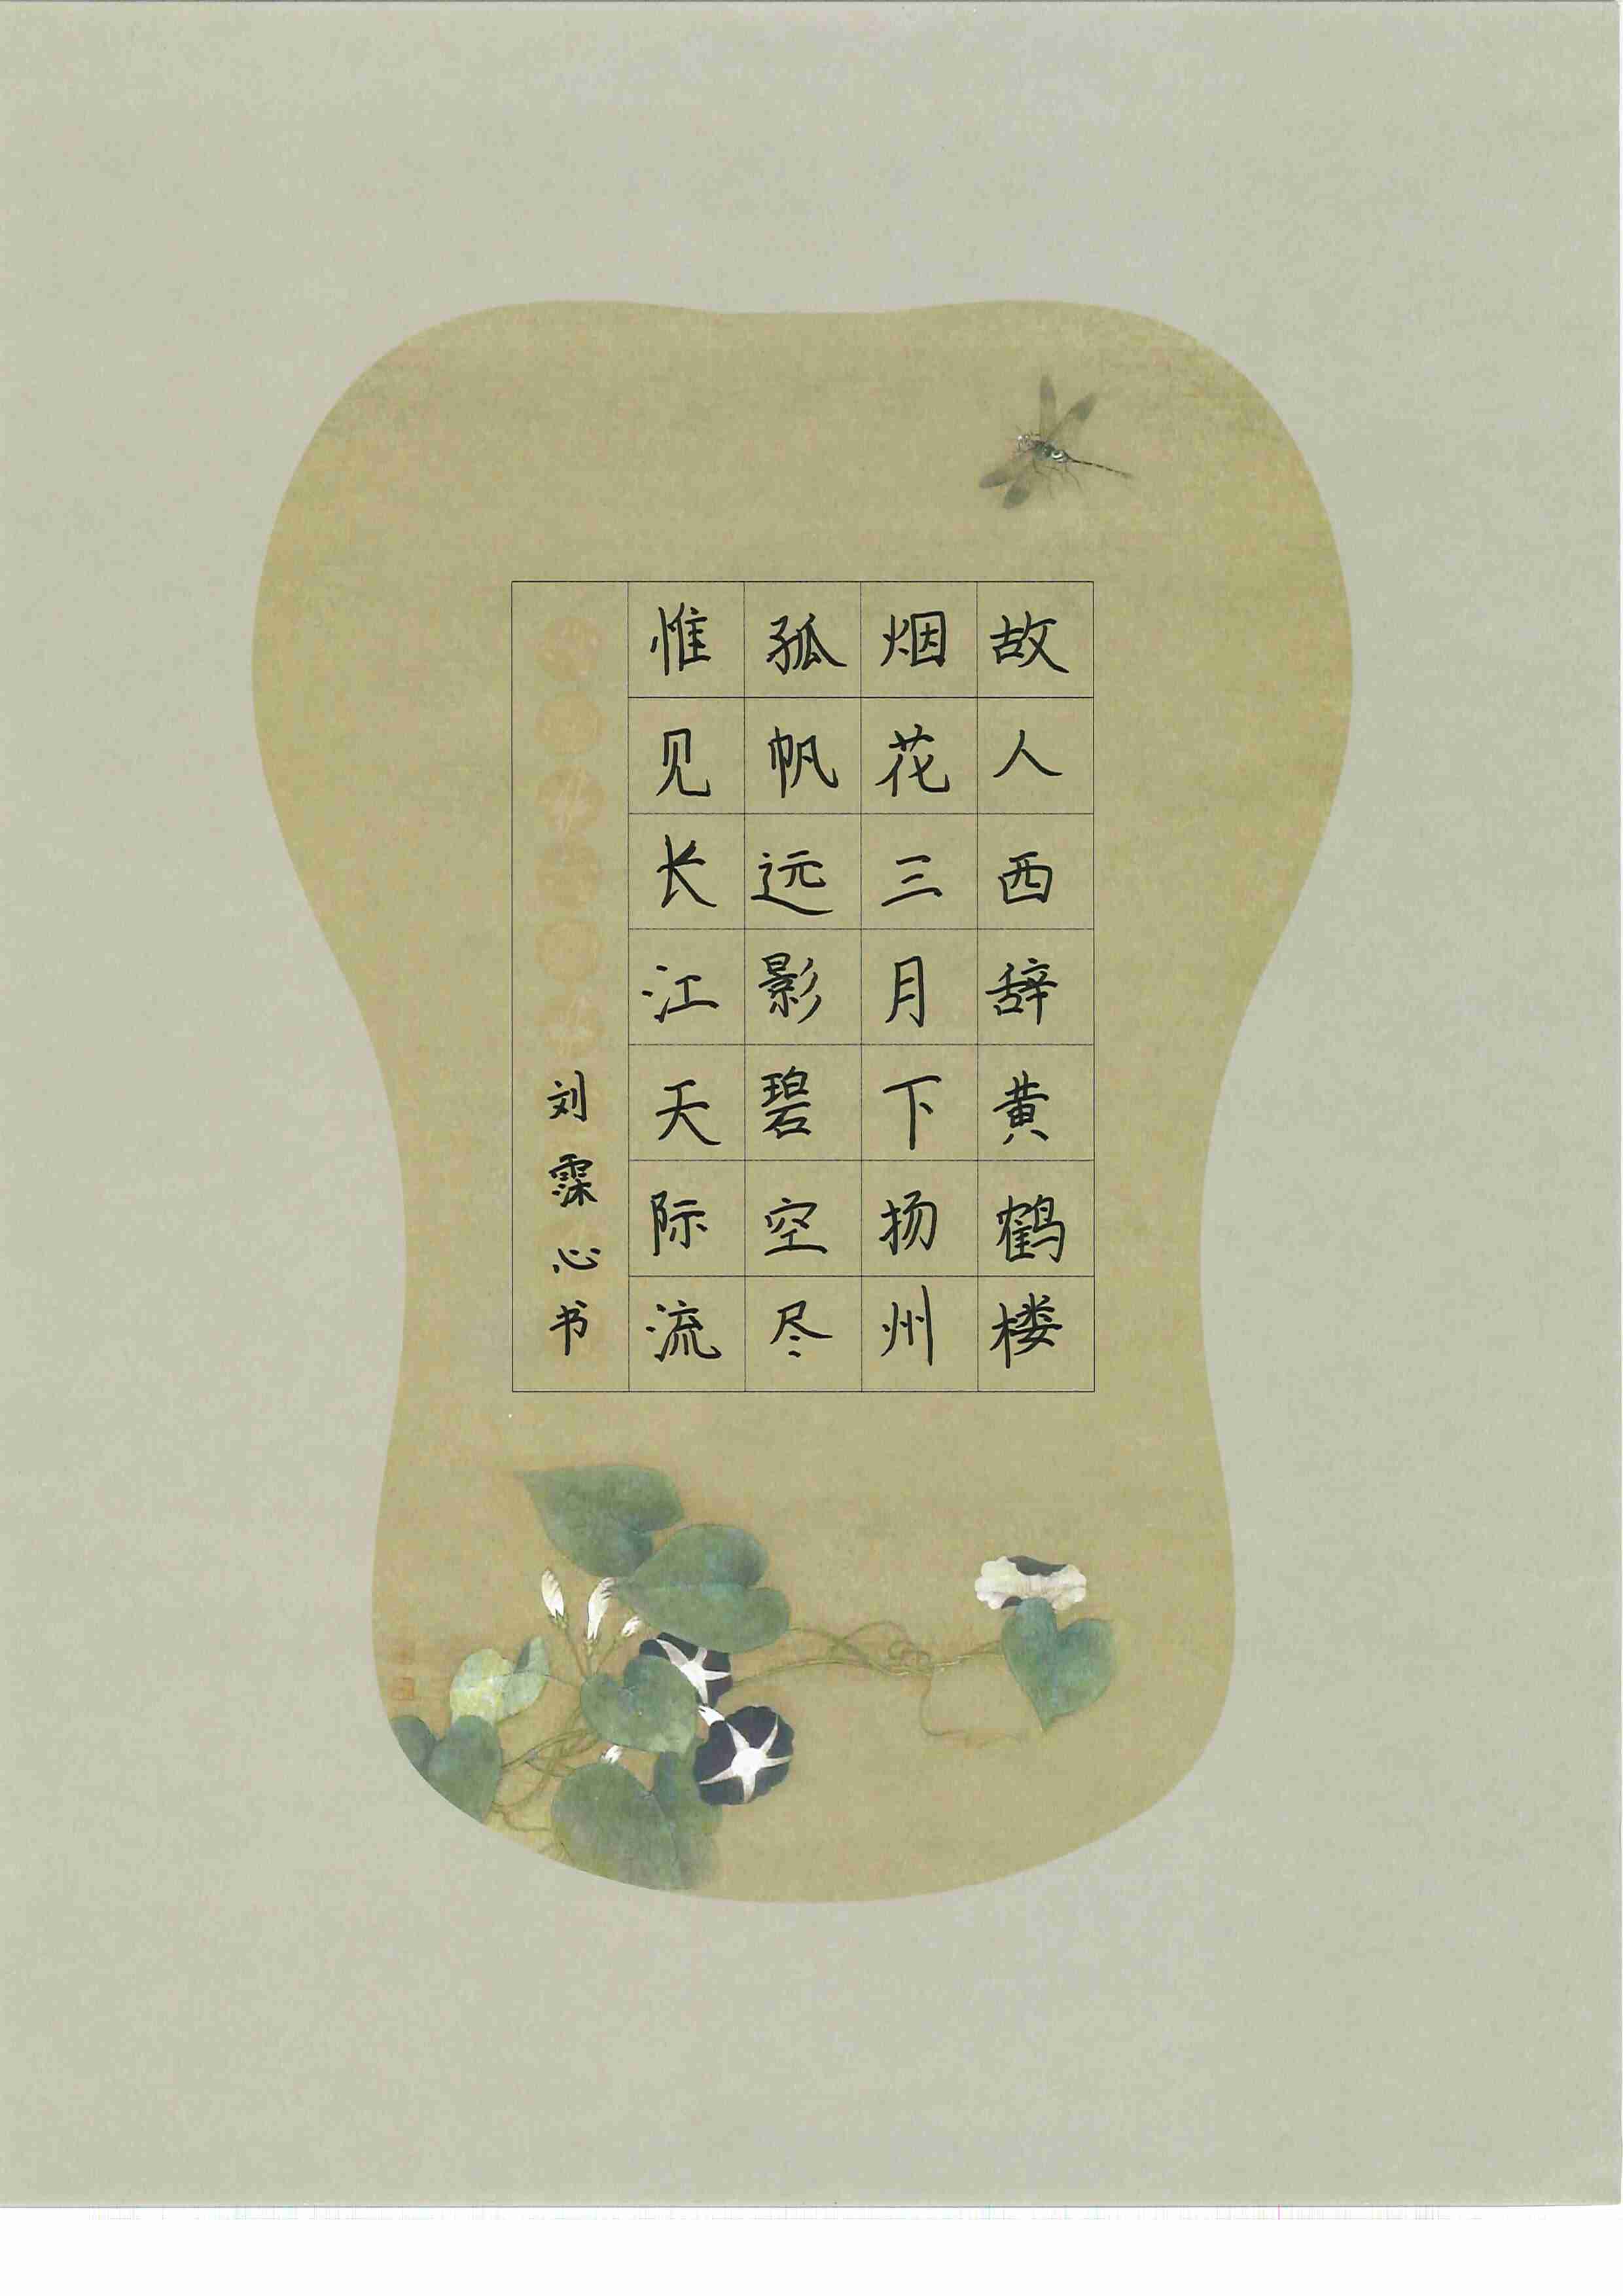 故人西辞黄鹤楼
烟花三月下扬州
孤帆远影碧空尽
惟见长江天际流
刘霂心书